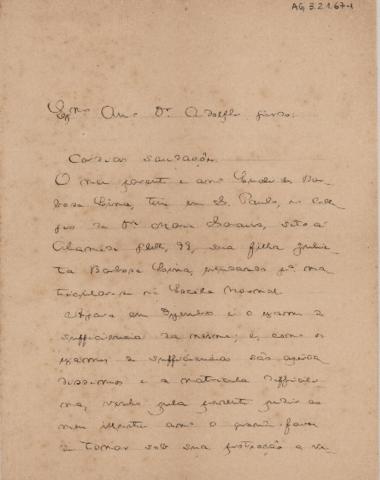 AG 3.2.1.67-1
Exmo Amo Dr Adolpho
Cordiaes saudações.
O meu parente e amo Bar-
bosa Lima, tem em S. Paulo, no Colle-
gio de Da Maria, sito á
Alameda 99, sua filha Julie-
ta Barbosa Lima, pa ma-
tricular-se na Escola Normal.
Agora em Dezembro é o exame de
sufficiencia da mesma; e, como os
exames de sufficiencia são
e a matricula difficili-
ma, venho pela presente pedir ao
meu illustre amo o grande favor
de tomar sob sua protecção a re-